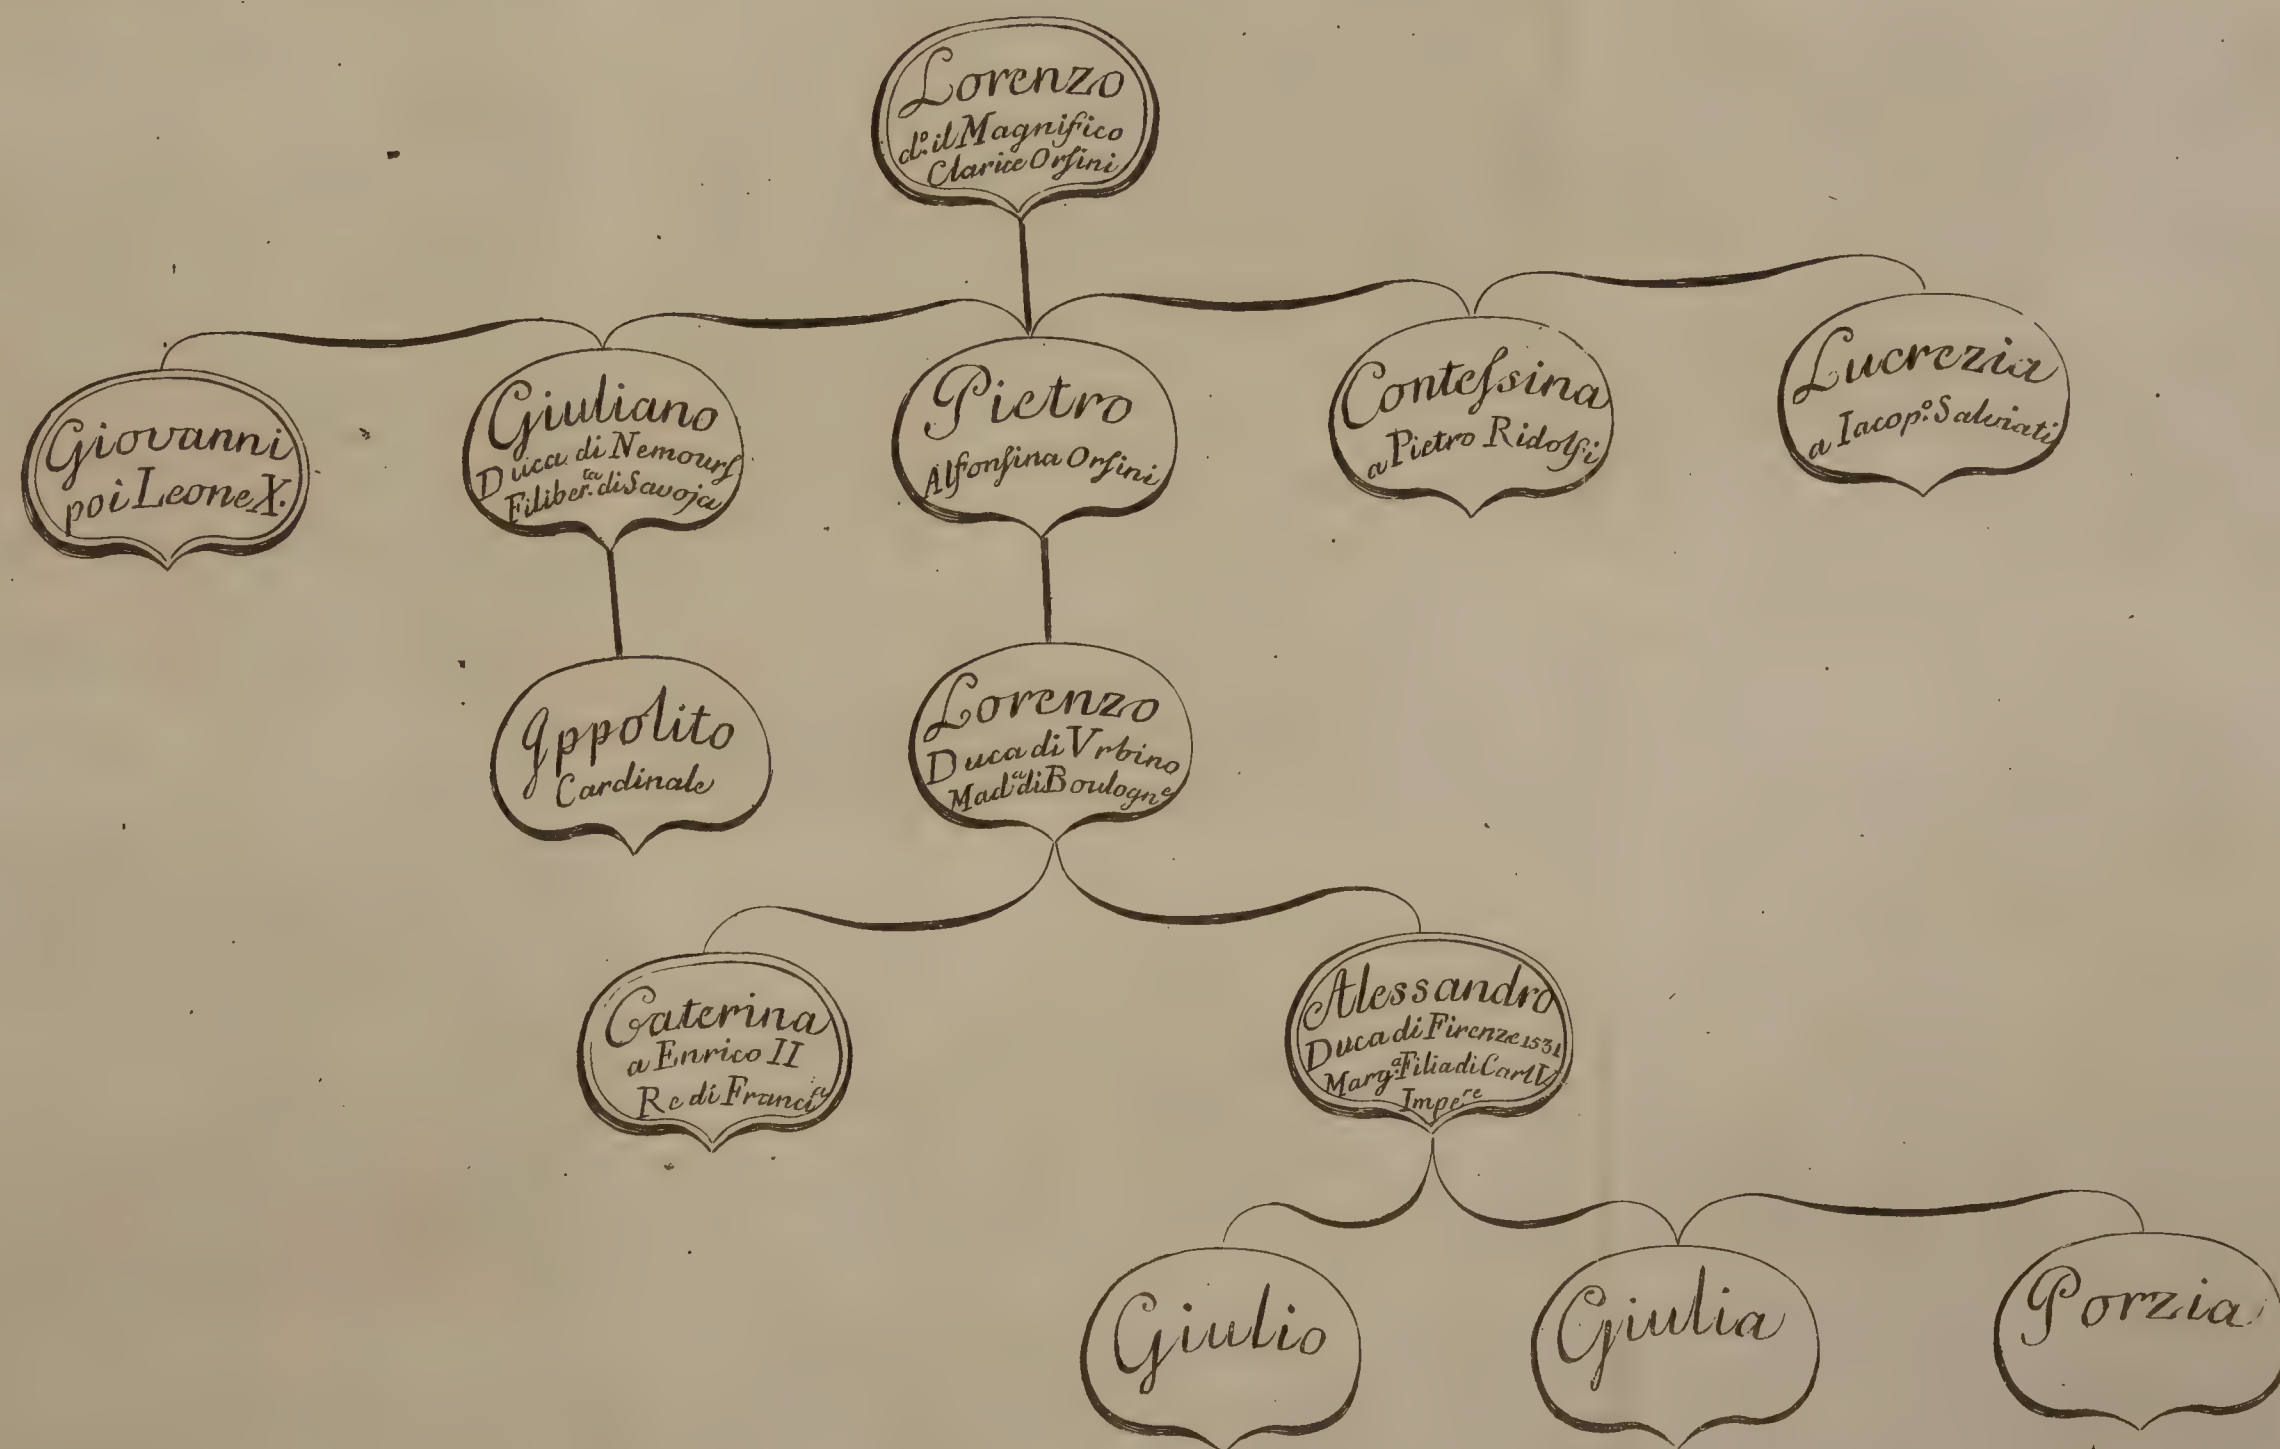 Lorenzo
d.º il Magnifico
Clarice Orſini
Giovanni
poi Leone X.
Giuliano
Duca di Nemourſ
Filiber.ta di Savoja
Pietro
Alfonſina Orſini
Conteſsina
a Pietro Ridolfi
Lucrezia
a Iacop.º Salviati
Ippolito
Cardinale
Lorenzo
Duca di Vrbino
Mad.a di Boulogne
Caterina
a Enrico II
Re di Francia
Alessandro
Duca di Firenze 1531
Marg.a Filia di Carl V
Impe.re
Giulio
Giulia
Porzia